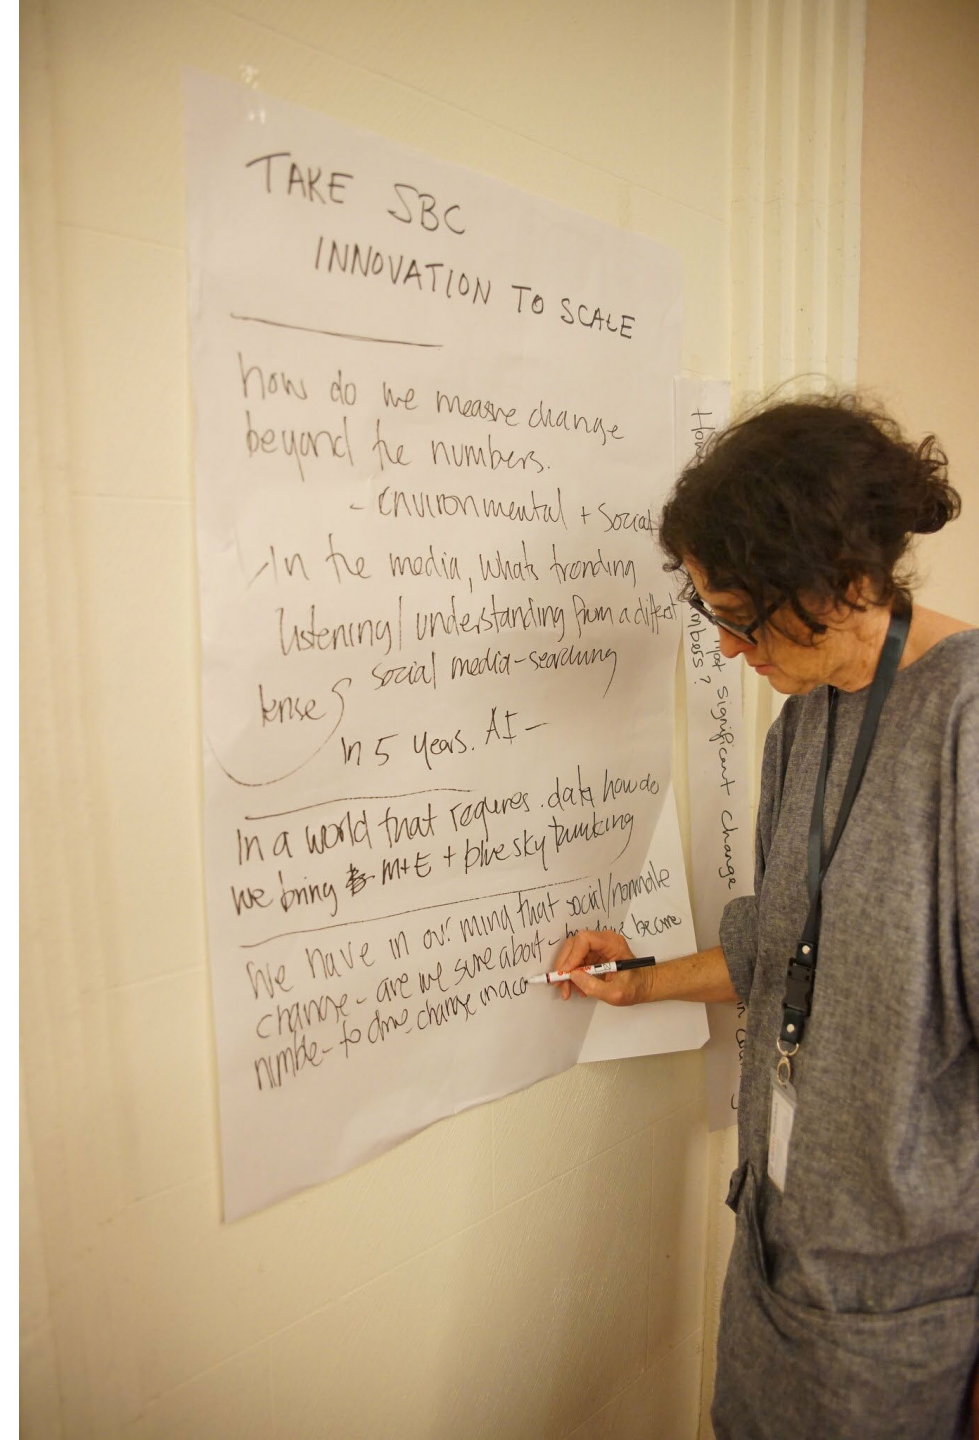 TAKE SBC
INNOVATION TO SCALE
how do we measure change
beyond the numbers.
- Environmental + Social
In the media, whats trending
listening/understanding from a diffent
social media-searching
lense
In 5 years. AI -
In a world that requires. data how do
we bring M+E + blue sky thinking
We have in our mind that social/normale
change - are we sure about - become
nimble - to drive change in a co
How
most significant change
mbers?
in